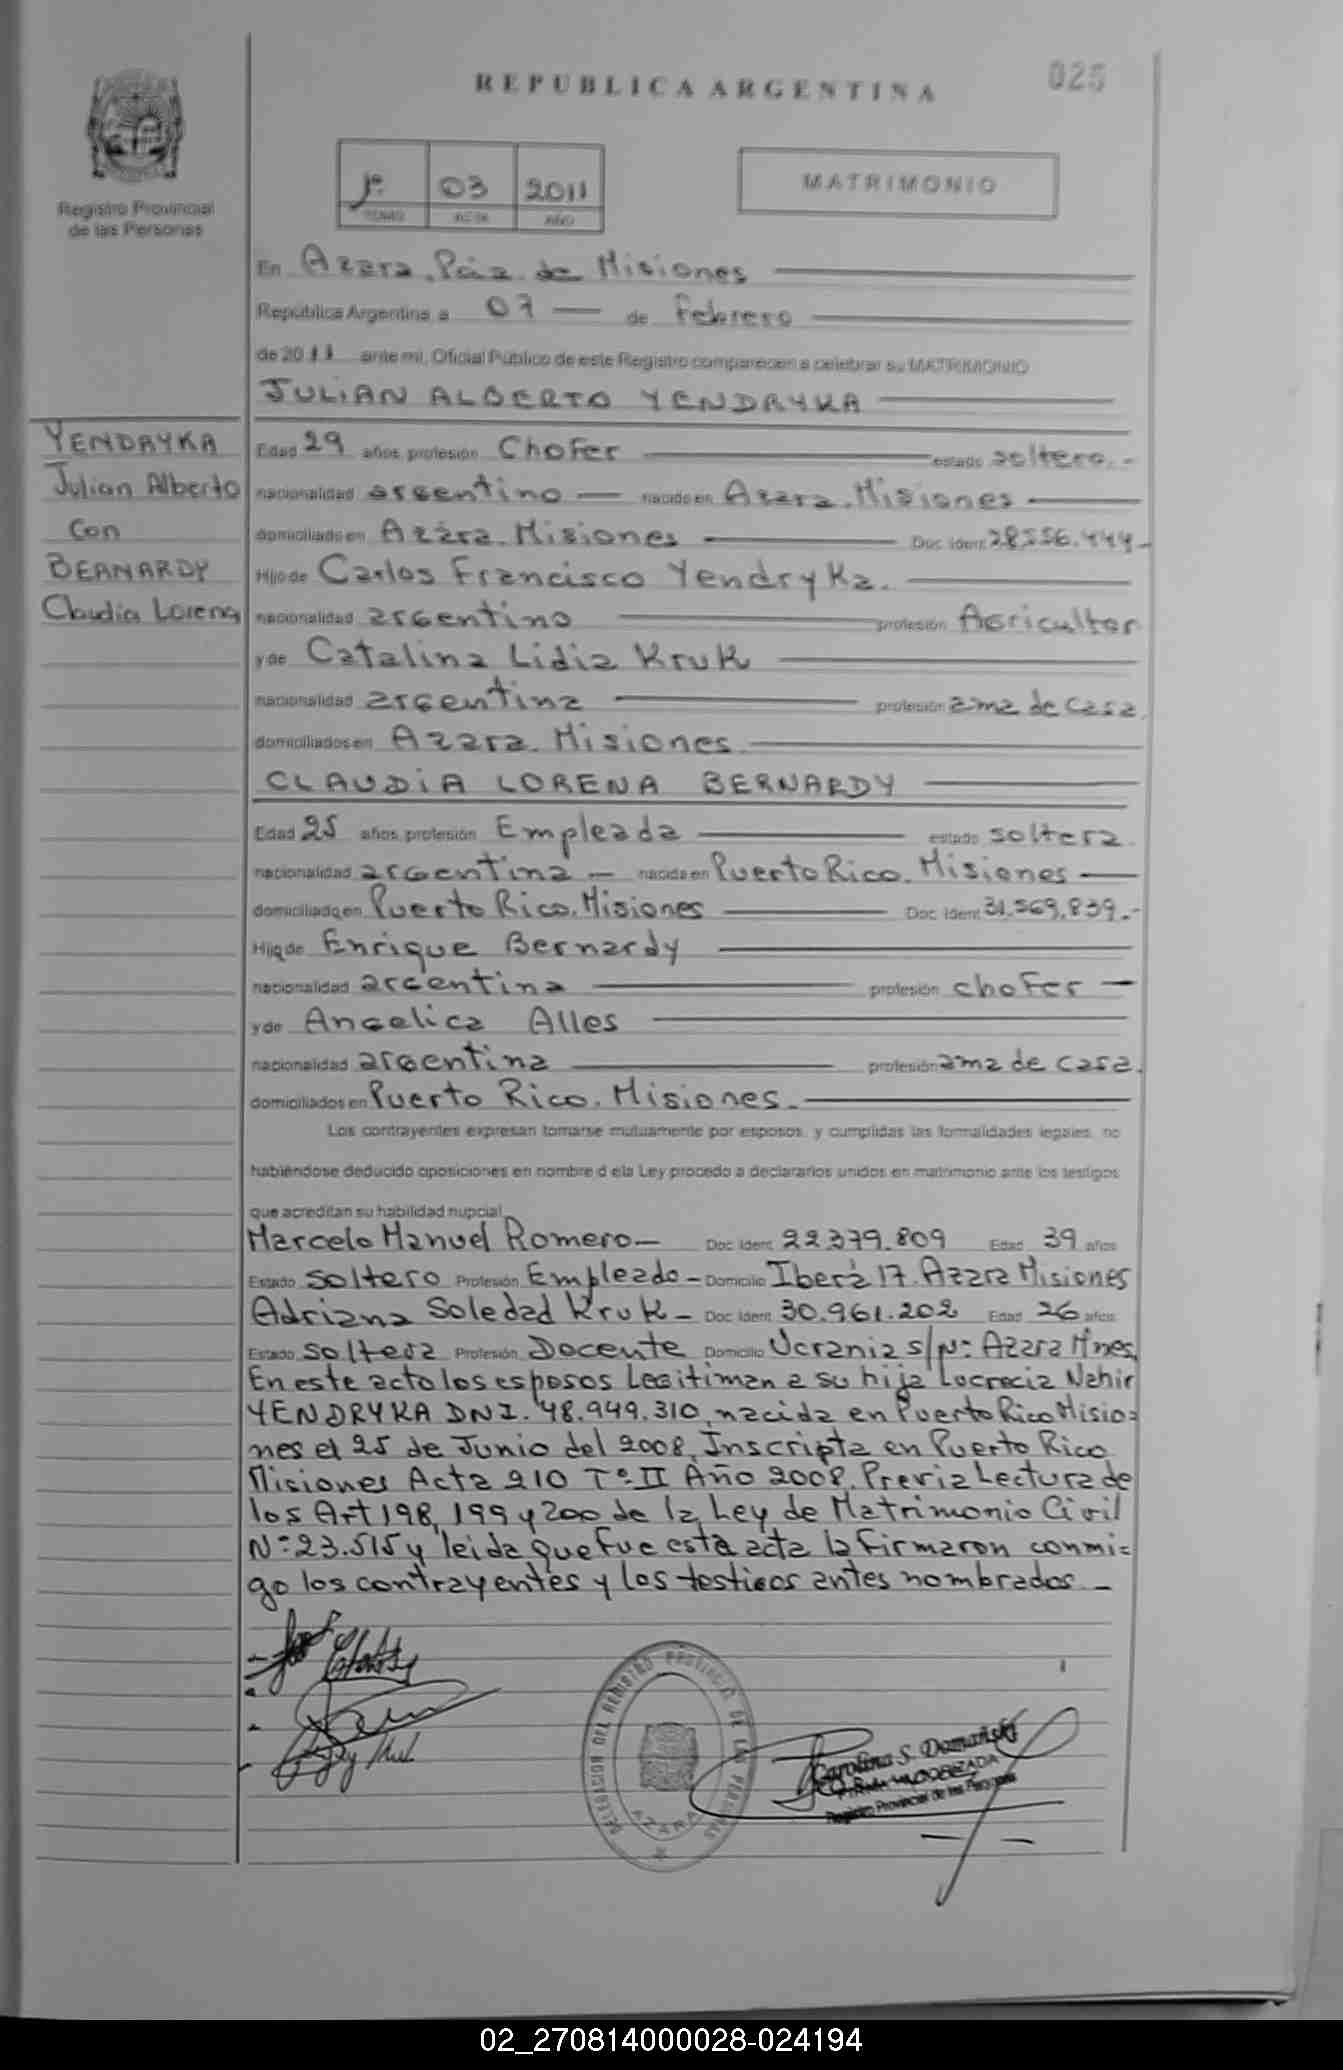 025
REPUBLICA ARGENTINA
Registro Provincial
de las Personas
1º 03 2011
TOMO ACTA AÑO
MATRIMONIO
En Azara, Pcia. de Misiones
República Argentina, a 07 — de Febrero
de 2011 ante mi, Oficial Público de este Registro comparecen a celebrar su MATRIMONIO
JULIAN ALBERTO YENDRYKA
YENDRYKA
Julian Alberto
Con
BERNARDY
Claudia Lorena
Edad 29 años, profesión Chofer estado soltero.-
nacionalidad argentino — nacido en Azara. Misiones
domiciliado en Azara. Misiones Doc. Ident 28.556.444.-
Hijo de Carlos Francisco Yendryka.
nacionalidad argentino profesión Agricultor
y de Catalina Lidia Kruk
nacionalidad argentina profesión ama de casa.
domiciliados en Azara. Misiones.
CLAUDIA LORENA BERNARDY
Edad 25 años, profesión Empleada estado soltera.
nacionalidad argentina — nacida en Puerto Rico. Misiones —
domiciliada en Puerto Rico. Misiones Doc. Ident 31.569.839.-
Hija de Enrique Bernardy
nacionalidad argentina profesión chofer —
y de Angelica Alles
nacionalidad argentina profesión ama de casa.
domiciliados en Puerto Rico. Misiones.
Los contrayentes expresan tomarse mutuamente por esposos, y cumplidas las formalidades legales, no
habiéndose deducido oposiciones en nombre d ela Ley procedo a declararlos unidos en matrimonio ante los testigos
que acreditan su habilidad nupcial
Marcelo Manuel Romero— Doc. Ident 22.379.809 Edad 39 años
Estado soltero Profesión Empleado — Domicilio Iberá 17. Azara Misiones
Adriana Soledad Kruk — Doc. Ident 30.961.202 Edad 26 años
Estado soltera Profesión Docente Domicilio Ucrania s/nº Azara Mnes.
En este acto los esposos Legitiman a su hija Lucrecia Nahir
YENDRYKA DNI. 48.949.310, nacida en Puerto Rico Misio=
nes el 25 de Junio del 2008, Inscripta en Puerto Rico
Misiones Acta 210 Tº II Año 2008. Previa Lectura de
los Art 198, 199 y 200 de la Ley de Matrimonio Civil
Nº 23.515 y leida que fue esta acta la firmaron conmi=
go los contrayentes y los testigos antes nombrados. —
DELEGACION DEL REGISTRO PROVINCIAL DE LAS PERSONAS
AZARA
Carolina S. Domański
FIRMA AUTORIZADA
Registro Provincial de las Personas
02_270814000028-024194